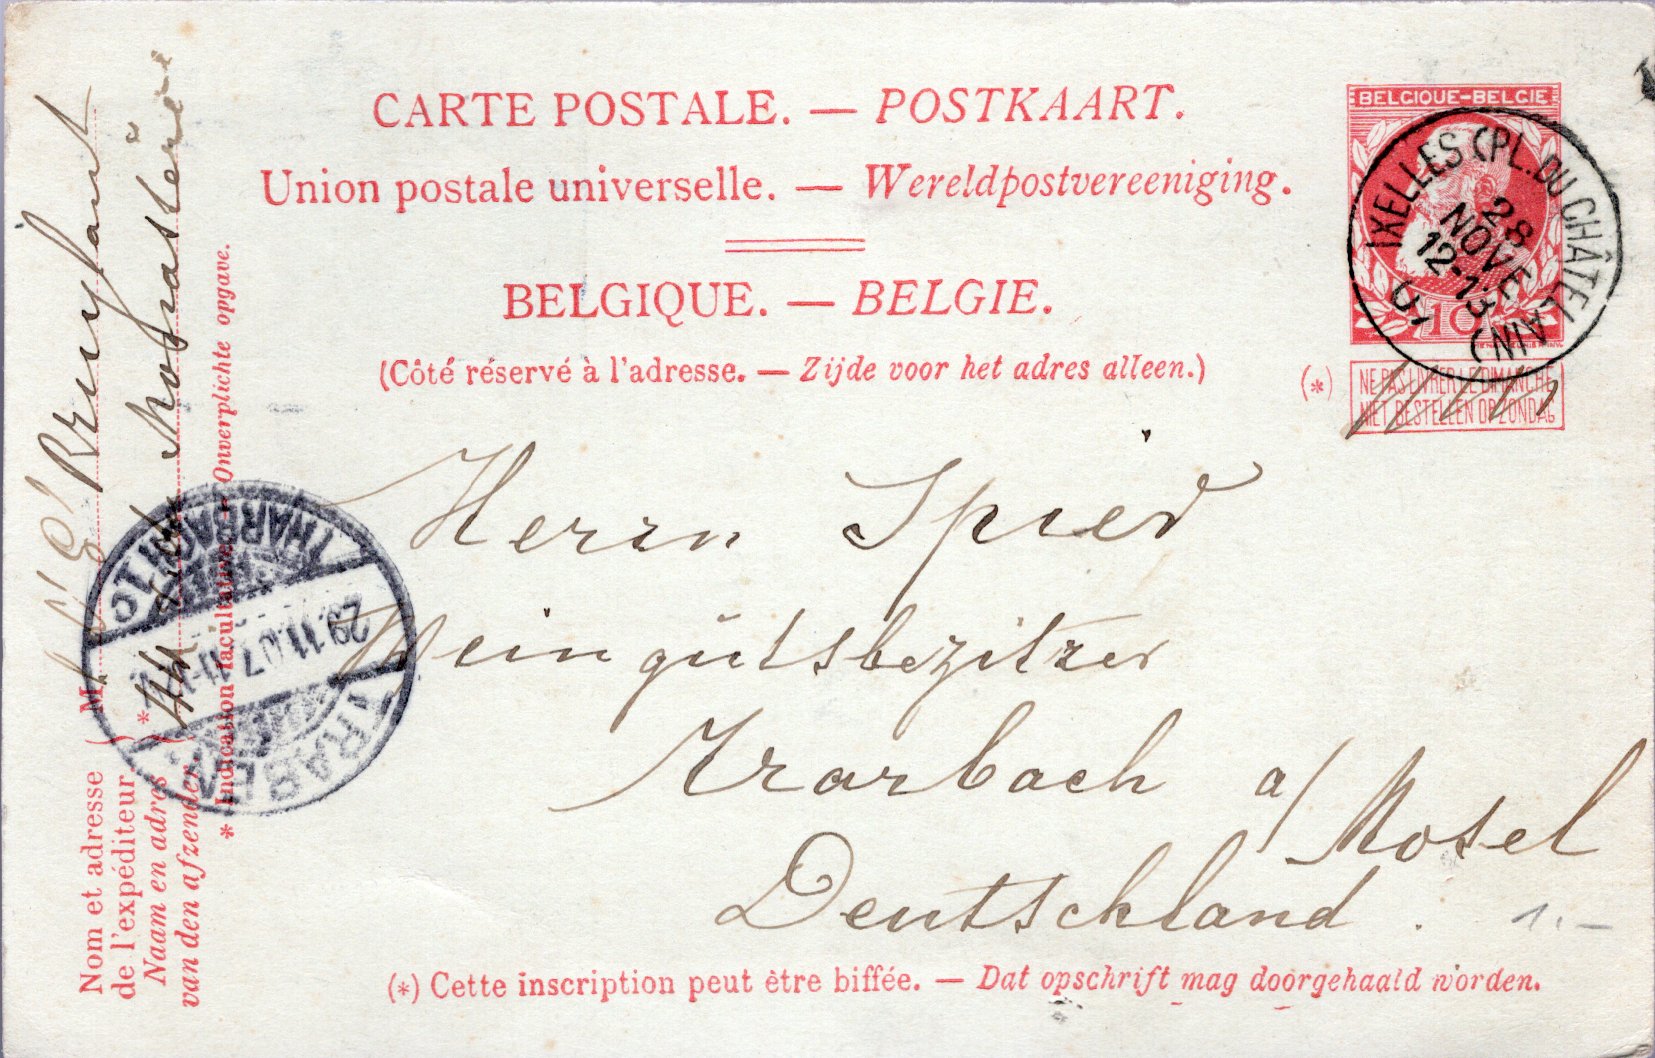 CARTE POSTALE. — POSTKAART.
Union postale universelle. — Wereldpostvereeniging.
BELGIQUE. — BELGIE.
(Côté réservé à l'adresse. — Zijde voor het adres alleen.)
BELGIQUE-BELGIE
10
IXELLES (PL. DU CHÂTELAIN)
28
NOVE
12-13
07
(*)
NE PAS LIVRER LE DIMANCHE
NIET BESTELLEN OP ZONDAG
Herrn Spier
Weingutsbezitzer
Trarbach a/ Mosel
Deutschland.
1.-
(*) Cette inscription peut être biffée. — Dat opschrift mag doorgehaald worden.
Nom et adresse
de l'expéditeur
Naam en adres
van den afzender
M
*
* Indication facultative. — Onverplichte opgave.
TRABEN-
TRARBACH 1 c
29.11.07.11-12